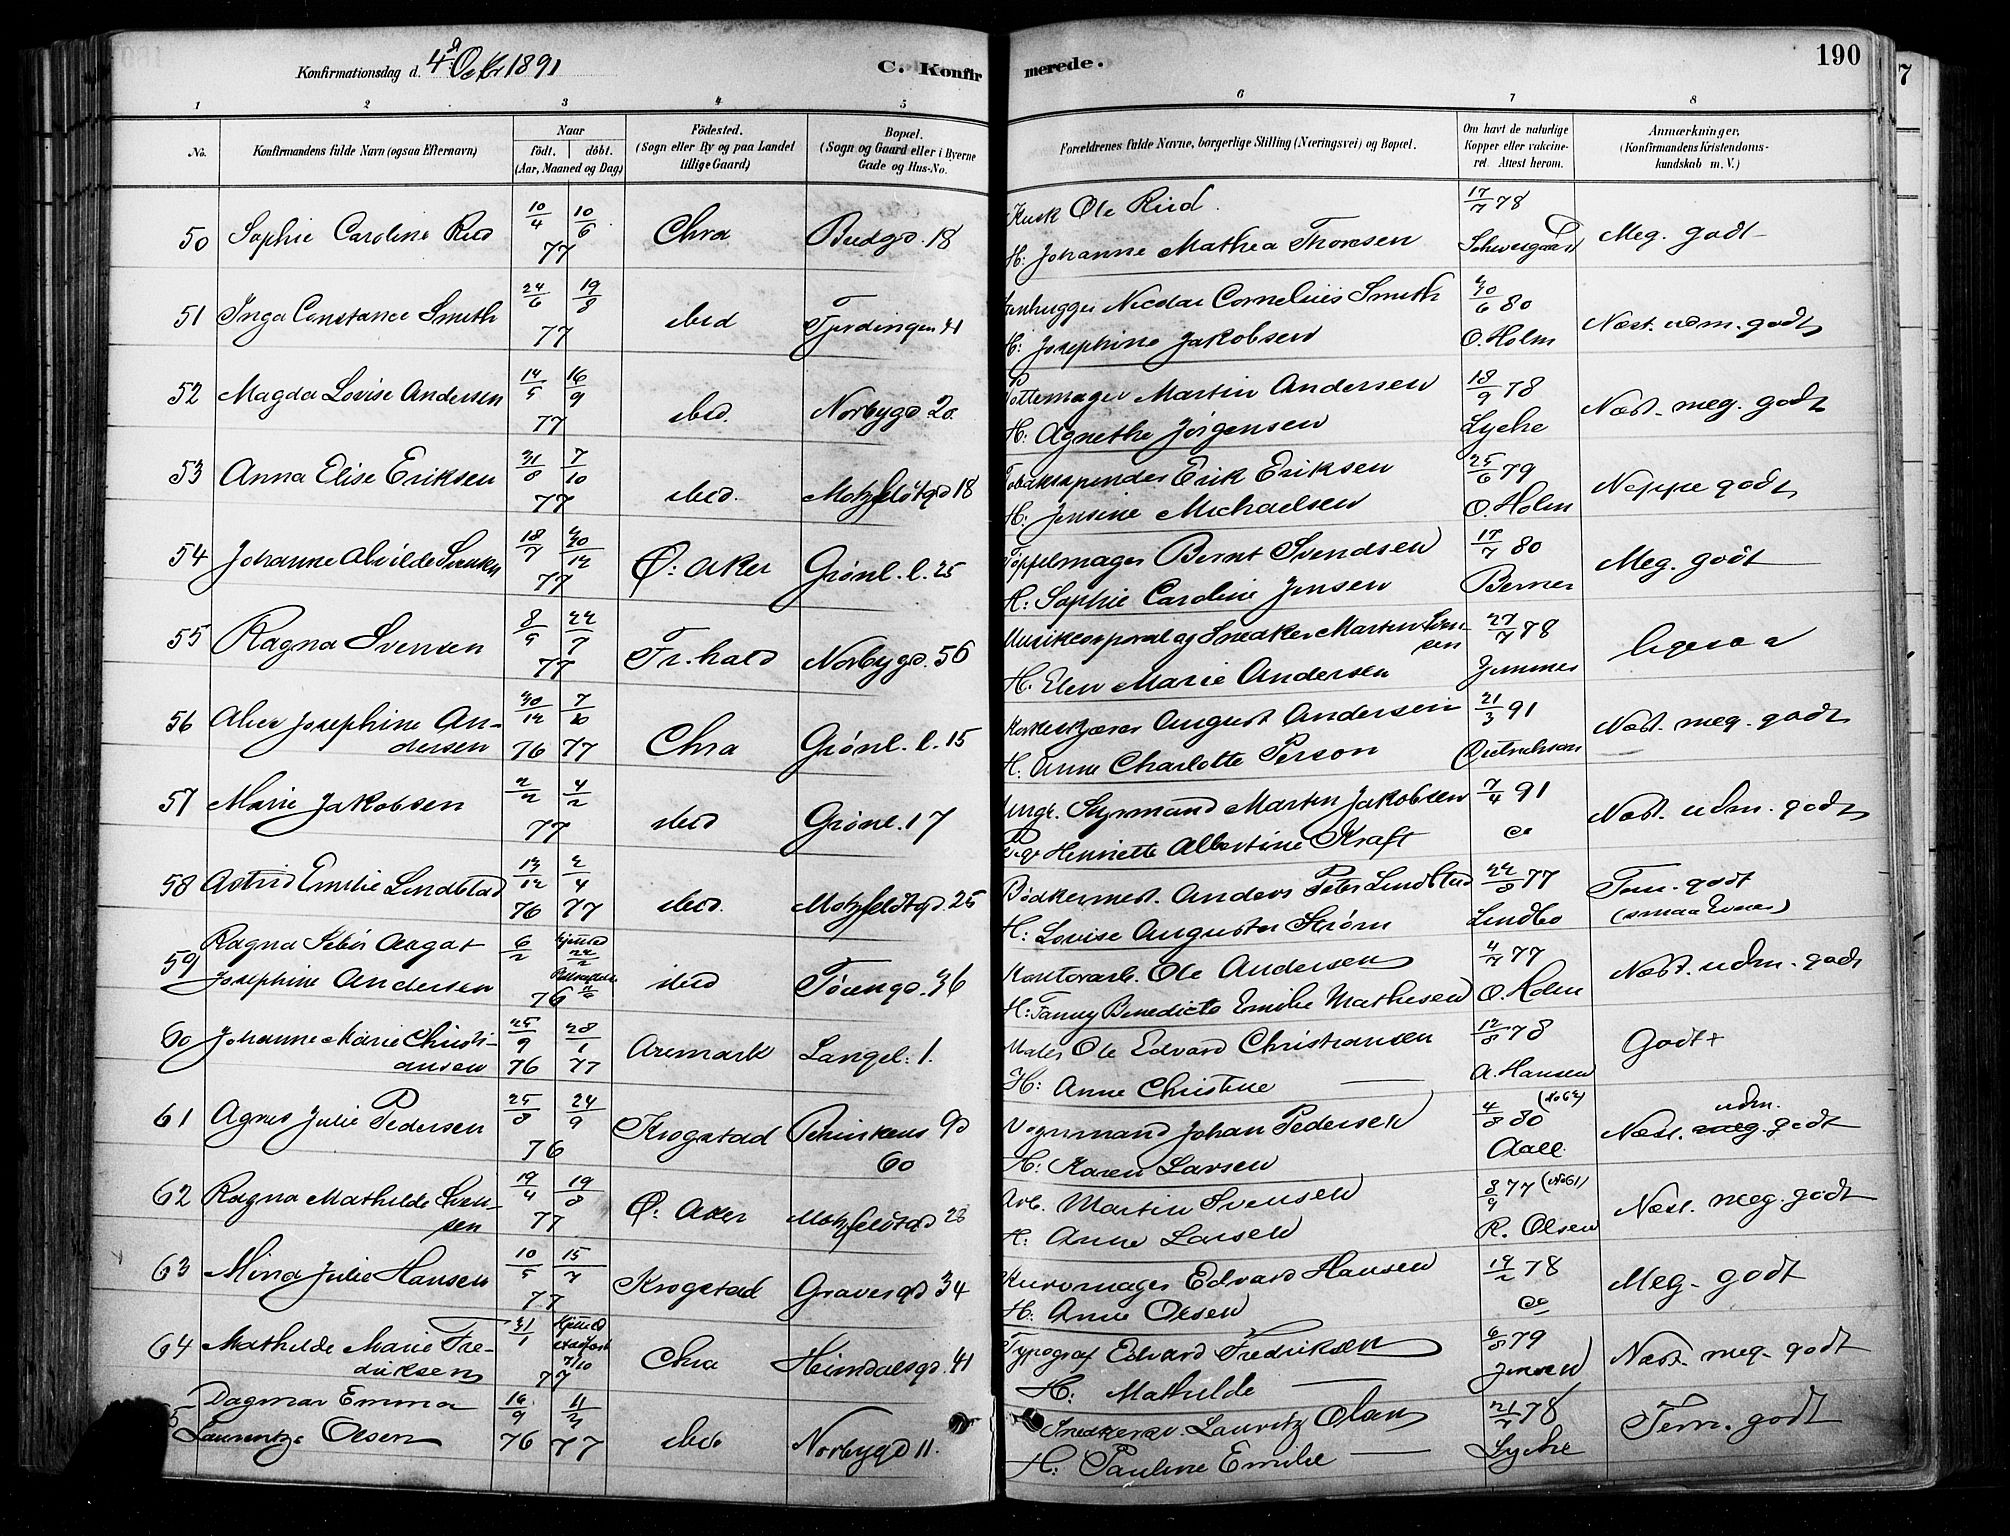 Konfirmationsdag d. 4d Octbr 1891
C. Konfirmerede.
190
1 2 3 4 5 6 7 8
No.
Konfirmandens fulde Navn (ogsaa Efternavn)
Naar
født. døbt.
(Aar, Maaned og Dag)
Fødested.
(Sogn eller By og paa Landet
tillige Gaard)
Bopæl.
(Sogn og Gaard eller i Byerne
Gade og Hus-No.
Forældrenes fulde Navne, borgerlige Stilling (Næringsvei) og Bopæl.
Om havt de naturlige
Kopper eller vakcine-
ret. Attest herom.
Anmærkninger.
(Konfirmandens Kristendoms-
kundskab m. V.)
50 Sophie Caroline Rud 10/4 10/6 77 Chra Budgd. 18
Kusk Ole Rud. 17/7 78
H: Johanne Mathea Thoresen Schweigaard Meg. godt
51 Inga Constance Smith 24/6 19/8 77 ibid Fjerdingen 41
Nicolai Cornelius Smith 30/6 80
H: Josephine Jakobsen O. Holm Næst. udm. godt
52 Magda Lovise Andersen 14/5 16/9 77 ibid. Norbygd. 20
Pottemager Martin Andersen 18/9 78
H: Agnethe Jørgensen Lyche Næst. meg. godt
53 Anna Elise Eriksen 31/8 7/10 77 ibid. Motzfeldtgd 18
Tobakspinder Erik Eriksen 25/6 79
H: Jensine Michaelsen O. Holm Neppe godt
54 Johanne Alvilde Svendsen 18/7 30/12 77 Ø: Aker Grønl. l. 25
Tøffelmager Bernt Svendsen 17/7 80
H: Sophie Caroline Jensen Berner Meg. godt
55 Ragna Svensen 8/5 22/7 77 Fr.hald Norbygd. 56
Musikkorporal og Snedker Martin Svensen 27/7 78
H. Elen Marie Andersen ligesaa
56 Alice Josephine An-
dersen 30/12 76 7/10 77 Chra Grønl. l. 15
August Andersen 21/3 91
H. Anne Charlotte Person Dietrichson Næst. meg. godt
57 Marie Jakobsen 2/2 4/2 77 ibid Grønl. 17
Ungk. Styrmand Martin Jakobsen 7/4 91
Pige Henriette Albertine Kraft Næst. udm. godt
58 Astrid Emilie Lindblad 13/12 76 2/4 77 ibid. Motzfeldtgd. 25
Bødkermest. Anders Peter Lindblad 22/8 77
H: Lovise Augusta Strøm Lindbo Tem. godt
(smaa Evner)
59 Ragna Aagat
Josephine Andersen 6/2 76 hjemmed. ibid Tøiengd. 36
Kontorarb. Ole Andersen 4/7 77
H: Fanny Benedicte Emilie Mathisen O. Holm Næst. udm. godt
60 Johanne Marie Christi-
ansen 25/9 76 28/1 77 Aremark Langel: 1.
Maler Ole Edvard Christiansen 12/8 78
H: Anne Christine — A. Hansen Godt +
61 Agnes Julie Pedersen 25/8 24/9 76 Krogstad Schinkens Gd
60
Vognmand Johan Pedersen 4/8 80 (No 62)
H: Karen Larsen Aall. Næst. meg. udm. godt
62 Ragna Mathilde Sven-
sen 19/4 19/8 77 Ø: Aker Motzfeldtgd 28
Arb. Martin Svensen 8/9 77 (No 61)
H. Anne Larsen R. Olsen Næst. meg. godt
63 Mina Julie Hansen 10/5 15/7 77 Krogstad Gravergd 34
Kurvmager Edvard Hansen 19/2 78
H. Anne Olsen Meg. godt
64 Mathilde Marie Fre-
driksen 31/1 77 hjemmed. 7/10 Chra Heimdalsgd. 41
Typograf Edvard Fredriksen 6/8 79
H: Mathilde — Jensen Næst. meg. godt
Dagmar Emma
Laurentze Olsen 16/9 76 11/3 77 ibid Norbygd 11.
Lauritz Olsen 21/7 78
H: Pauline Emilie — Lyche Tem. godt